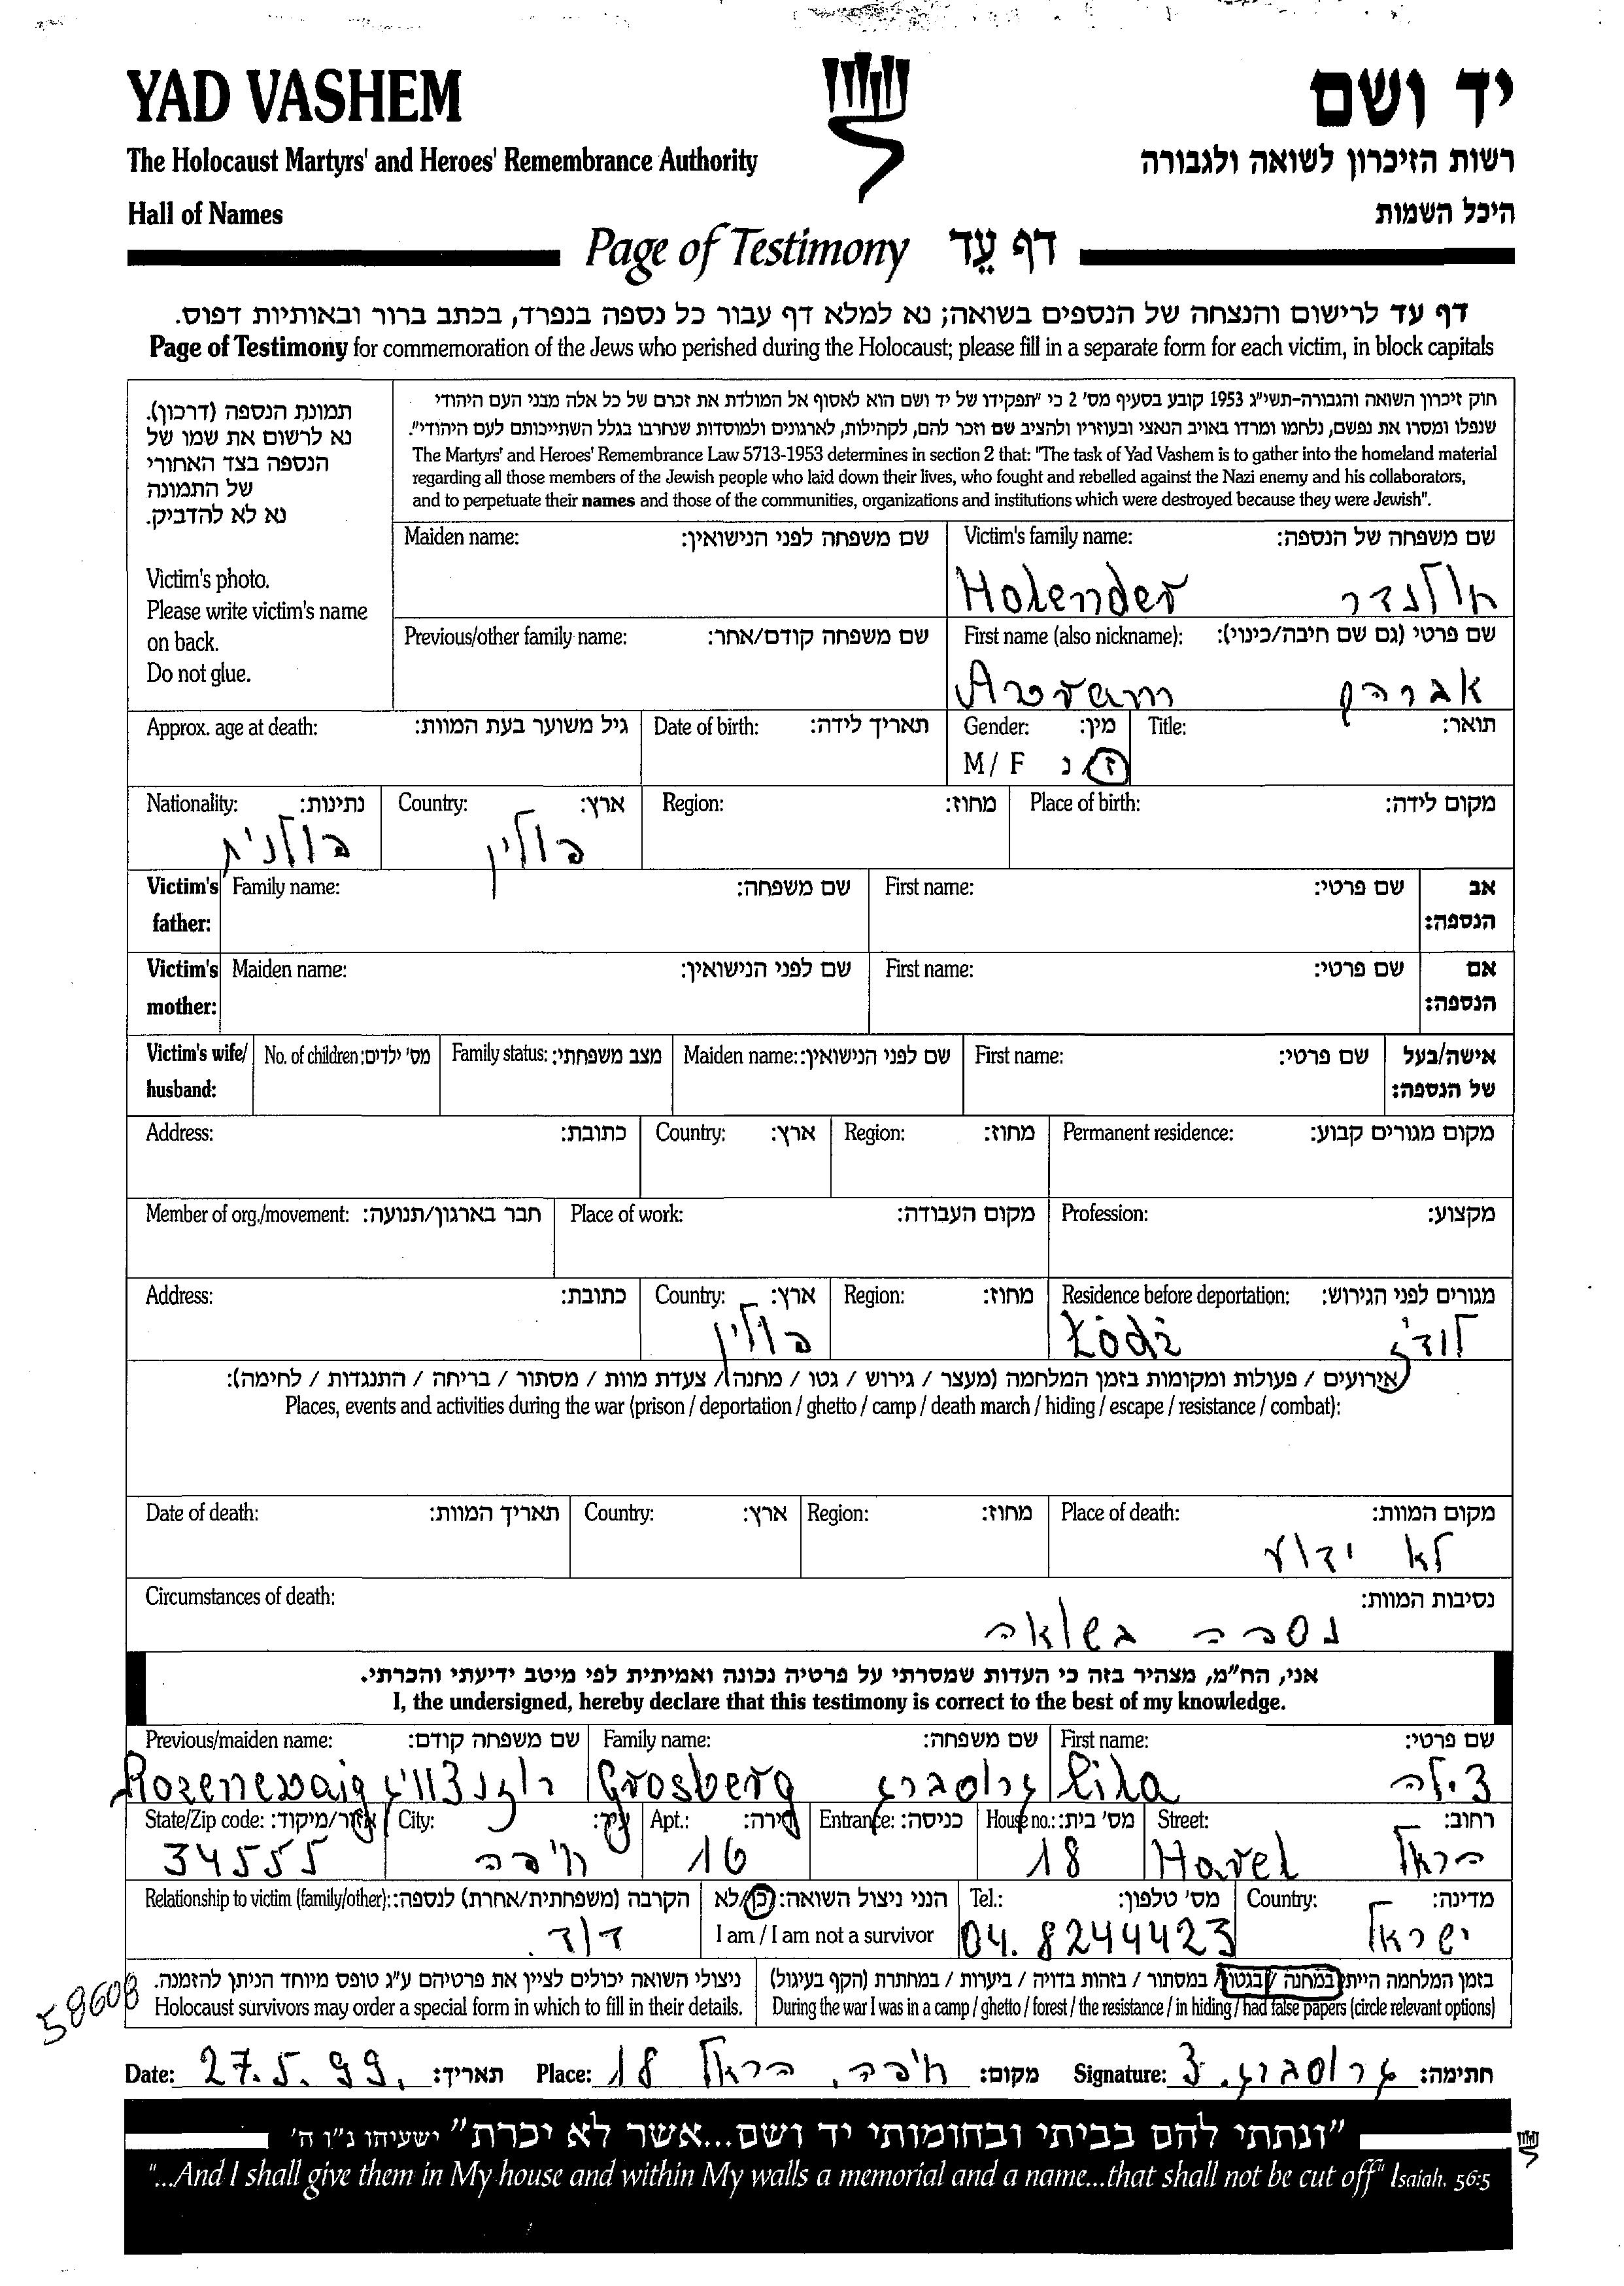 YAD VASHEM
יד ושם
The Holocaust Martyrs' and Heroes' Remembrance Authority
רשות הזיכרון לשואה ולגבורה
Hall of Names
היכל השמות
Page of Testimony דף עֵד
דף עד לרישום והנצחה של הנספים בשואה; נא למלא דף עבור כל נספה בנפרד, בכתב ברור ובאותיות דפוס.
Page of Testimony for commemoration of the Jews who perished during the Holocaust; please fill in a separate form for each victim, in block capitals
תמונת הנספה (דרכון).
נא לרשום את שמו של
הנספה בצד האחורי
של התמונה
נא לא להדביק.
Victim's photo.
Please write victim's name
on back.
Do not glue.
חוק זיכרון השואה והגבורה-תשי"ג 1953 קובע בסעיף מס' 2 כי "תפקידו של יד ושם הוא לאסוף אל המולדת את זכרם של כל אלה מבני העם היהודי
שנפלו ומסרו את נפשם, נלחמו ומרדו באויב הנאצי ובעוזריו ולהציב שם וזכר להם, לקהילות, לארגונים ולמוסדות שנחרבו בגלל השתייכותם לעם היהודי".
The Martyrs' and Heroes' Remembrance Law 5713-1953 determines in section 2 that: "The task of Yad Vashem is to gather into the homeland material
regarding all those members of the Jewish people who laid down their lives, who fought and rebelled against the Nazi enemy and his collaborators,
and to perpetuate their names and those of the communities, organizations and institutions which were destroyed because they were Jewish".
Maiden name: שם משפחה לפני הנישואין: Victim's family name: שם משפחה של הנספה:
Holender הולנדר
Previous/other family name: שם משפחה קודם/אחר: First name (also nickname): שם פרטי (גם שם חיבה/כינוי):
Avram אברהם
Approx. age at death: גיל משוער בעת המוות: Date of birth: תאריך לידה: Gender: מין: Title: תואר:
M / F ז/נ
Nationality: נתינות: Country: ארץ: Region: מחוז: Place of birth: מקום לידה:
פולנית פולין
Victim's Family name: שם משפחה: First name: שם פרטי: אב
father: הנספה:
Victim's Maiden name: שם לפני הנישואין: First name: שם פרטי: אם
mother: הנספה:
Victim's wife/ No. of children: מס' ילדים: Family status: מצב משפחתי: Maiden name: שם לפני הנישואין: First name: שם פרטי: אישה/בעל
husband: של הנספה:
Address: כתובת: Country: ארץ: Region: מחוז: Permanent residence: מקום מגורים קבוע:
Member of org./movement: חבר בארגון/תנועה: Place of work: מקום העבודה: Profession: מקצוע:
Address: כתובת: Country: ארץ: Region: מחוז: Residence before deportation: מגורים לפני הגירוש:
פולין Łódź לודז'
אירועים / פעולות ומקומות בזמן המלחמה (מעצר / גירוש / גטו / מחנה / צעדת מוות / מסתור / בריחה / התנגדות / לחימה):
Places, events and activities during the war (prison / deportation / ghetto / camp / death march / hiding / escape / resistance / combat):
Date of death: תאריך המוות: Country: ארץ: Region: מחוז: Place of death: מקום המוות:
לא ידוע
Circumstances of death: נסיבות המוות:
נספה בשואה
אני, הח"מ, מצהיר בזה כי העדות שמסרתי על פרטיה נכונה ואמיתית לפי מיטב ידיעתי והכרתי.
I, the undersigned, hereby declare that this testimony is correct to the best of my knowledge.
Previous/maiden name: שם משפחה קודם: Family name: שם משפחה: First name: שם פרטי:
רוזנצווייג Grosberg גרוסברג צילה
State/Zip code: אזור/מיקוד: City: עיר: Apt.: דירה: Entrance: כניסה: House no.: מס' בית: Street: רחוב:
34555 חיפה 16 18 Harel הראל
Relationship to victim (family/other): הקרבה (משפחתית/אחרת) לנספה: הנני ניצול השואה: כן/לא Tel.: מס' טלפון: Country: מדינה:
דוד. I am / I am not a survivor 04. 8244423 ישראל
ניצולי השואה יכולים לציין את פרטיהם ע"ג טופס מיוחד הניתן להזמנה. בזמן המלחמה הייתי במחנה / בגטו / במסתור / בזהות בדויה / ביערות / במחתרת (הקף בעיגול)
Holocaust survivors may order a special form in which to fill in their details. During the war I was in a camp / ghetto / forest / the resistance / in hiding / had false papers (circle relevant options)
58608
Date: 27.5.99. תאריך: Place: חיפה, הראל 18 מקום: Signature: צ. גרוסברג חתימה:
"ונתתי להם בביתי ובחומותי יד ושם...אשר לא יכרת" ישעיהו נ"ו ה'
"...And I shall give them in My house and within My walls a memorial and a name...that shall not be cut off" Isaiah. 56:5